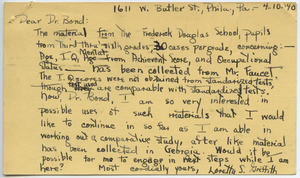 1611 W. Butler St., Phila., Pa. - 4.10.40
Dear Dr. Bond:
The material from the Frederick Douglass School, Pupils
from Third thru sixth grades, 30 cases per grade, concerning:-
Age, I.Q., Mental Age from Achievement score, and Occupational
status has been collected from Mr. Faucet.
The I.Q. scores were not obtained from standardized tests,
though used are comparable with standardized tests.
Now, Dr. Bond, I am so very interested in
possible uses of such materials that I would
like to continue in so far as I am able in
working out a comparative study, after like material
has been collected in Georgia. Would it be
possible for me to engage in next steps while I am
here? Most cordially yours, Loretta S. Griffith